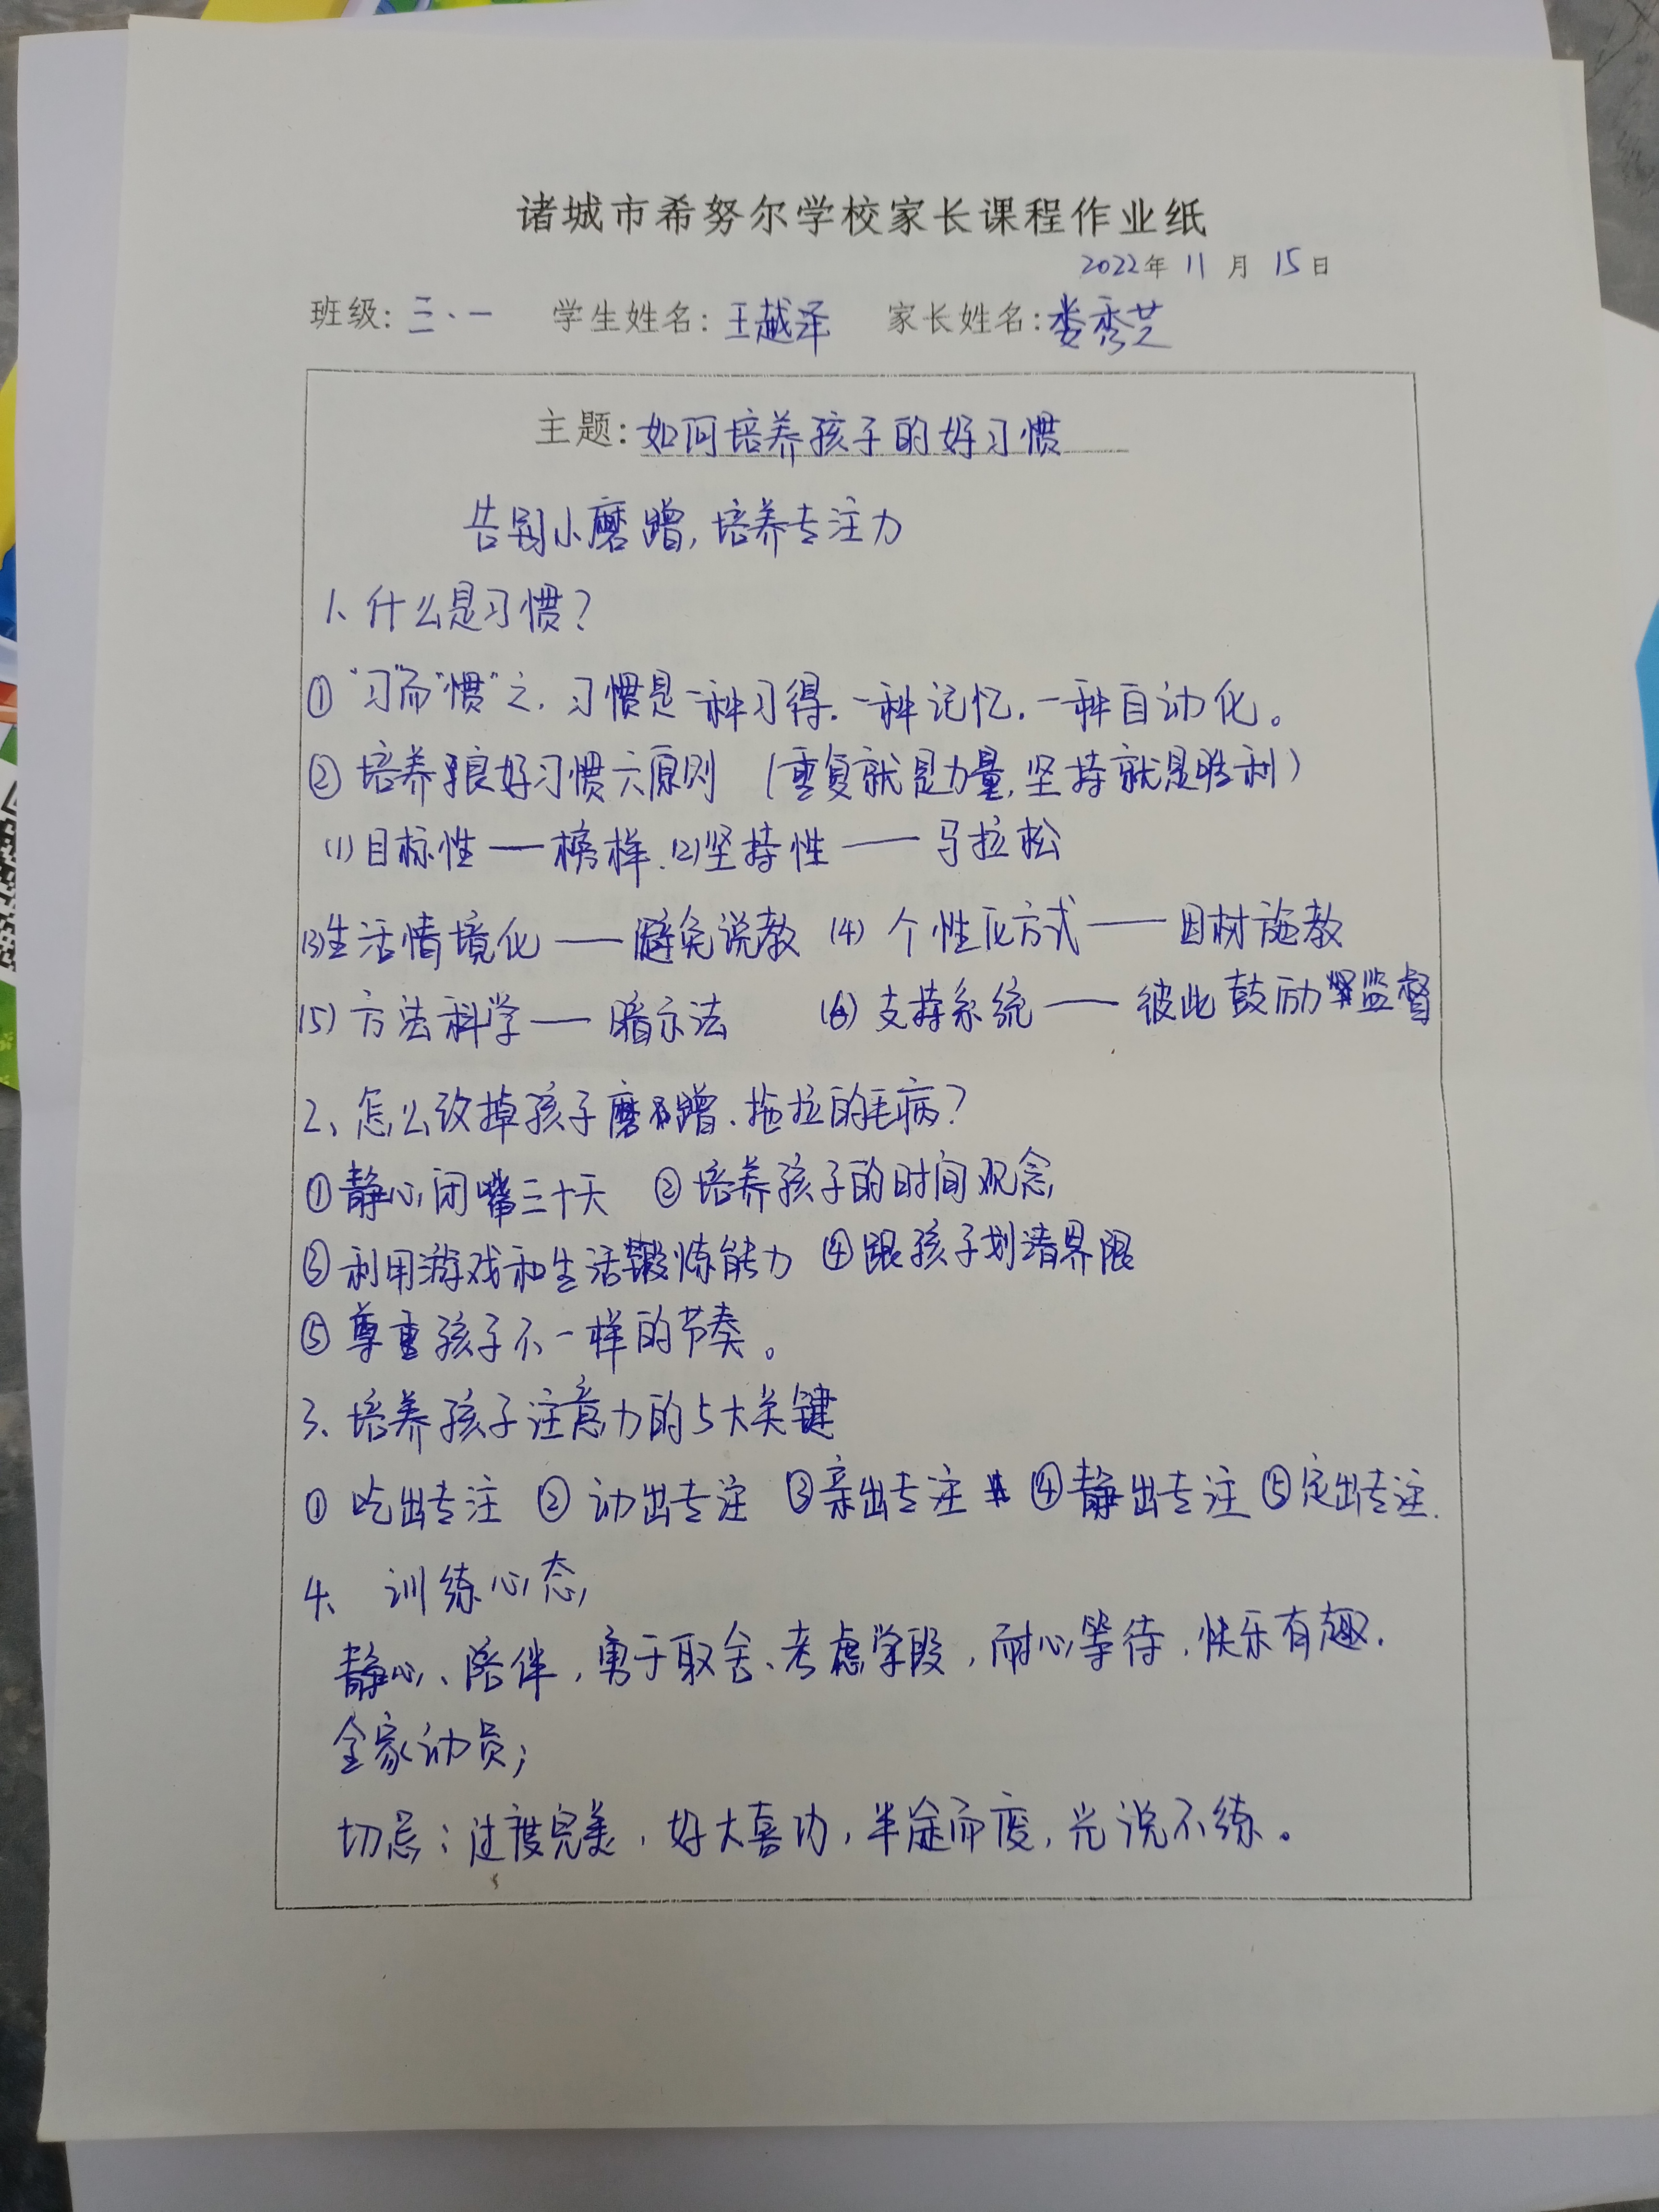 诸城市希努尔学校家长课程作业纸
2022年 11 月 15日
班级: 三、一 学生姓名: 王越泽 家长姓名: 娄秀芝
主题: 如何培养孩子的好习惯
告别小磨蹭, 培养专注力
1、什么是习惯?
① "习"而"惯"之. 习惯是一种习得. 一种记忆. 一种自动化。
② 培养良好习惯六原则 (重复就是力量, 坚持就是胜利)
(1) 目标性 — 榜样. (2) 坚持性 — 马拉松
(3) 生活情境化 — 避免说教 (4) 个性化方式 — 因材施教
(5) 方法科学 — 暗示法 (6) 支持系统 — 彼此鼓励监督
2、怎么改掉孩子磨蹭、拖拉的毛病?
① 静心闭嘴三十天 ② 培养孩子的时间观念
③ 利用游戏和生活锻炼能力 ④ 跟孩子划清界限
⑤ 尊重孩子不一样的节奏。
3、培养孩子注意力的5大关键
① 吃出专注 ② 动出专注 ③ 亲出专注 ④ 静出专注 ⑤ 定出专注.
4、训练心态
静心、陪伴, 勇于取舍、考虑学段, 耐心等待, 快乐有趣.
全家动员;
切忌: 过度完美, 好大喜功, 半途而废, 光说不练。